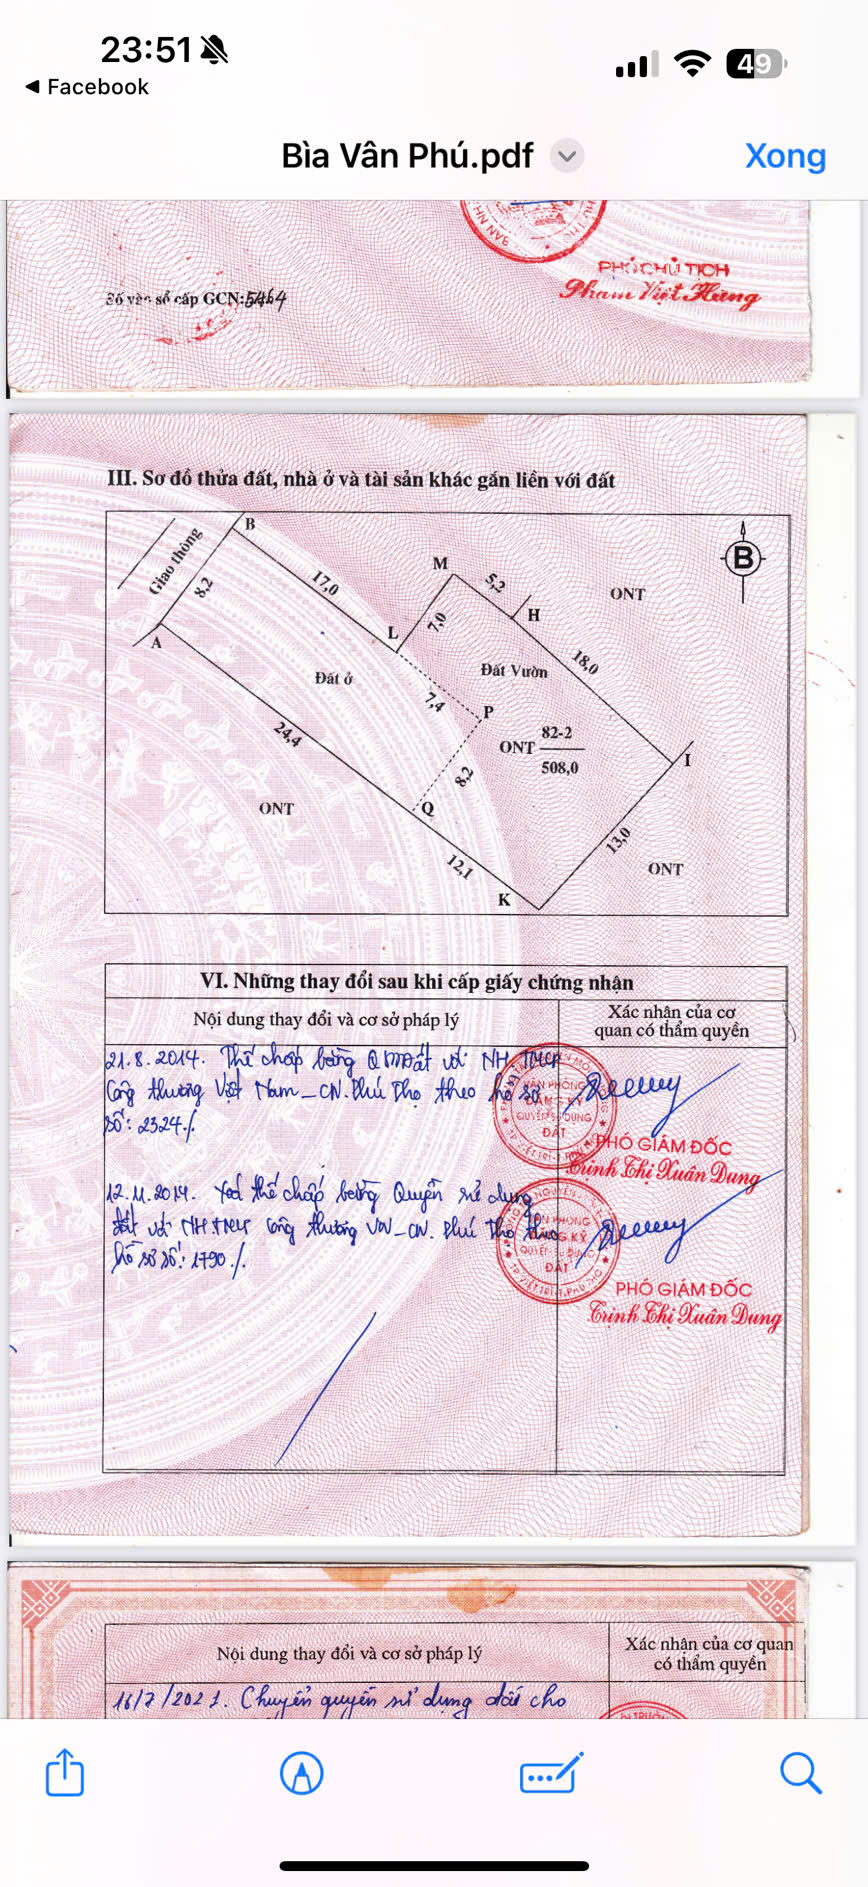 23:51
49
Facebook
Bìa Vân Phú.pdf
Xong
PHÓ CHỦ TỊCH
Phạm Việt Hùng
Số vào sổ cấp GCN:5464
III. Sơ đồ thửa đất, nhà ở và tài sản khác gắn liền với đất
B
Giao thông
8,2
17,0
M
5,2
B
ONT
H
7,0
L
A
18,0
Đất Vườn
Đất ở
7,4
P
82-2
ONT
508,0
24,4
I
8,2
ONT
Q
13,0
12,1
ONT
K
VI. Những thay đổi sau khi cấp giấy chứng nhận
Nội dung thay đổi và cơ sở pháp lý
Xác nhận của cơ
quan có thẩm quyền
21.8.2014. Thế chấp bằng QSDĐất với NH TMCP
Công thương Việt Nam - CN. Phú Thọ theo hồ sơ
số: 2324./.
VĂN PHÒNG
ĐĂNG KÝ
QUYỀN SỬ DỤNG
ĐẤT
PHÓ GIÁM ĐỐC
Trịnh Thị Xuân Dung
12.11.2014. Xoá thế chấp bằng Quyền sử dụng
đất với NH.TMCP Công thương VN - CN. Phú Thọ theo
hồ sơ số: 1790./.
VĂN PHÒNG
ĐĂNG KÝ
QUYỀN SỬ DỤNG
ĐẤT
PHÓ GIÁM ĐỐC
Trịnh Thị Xuân Dung
Nội dung thay đổi và cơ sở pháp lý
Xác nhận của cơ quan
có thẩm quyền
16/7/2021. Chuyển quyền sử dụng đất cho